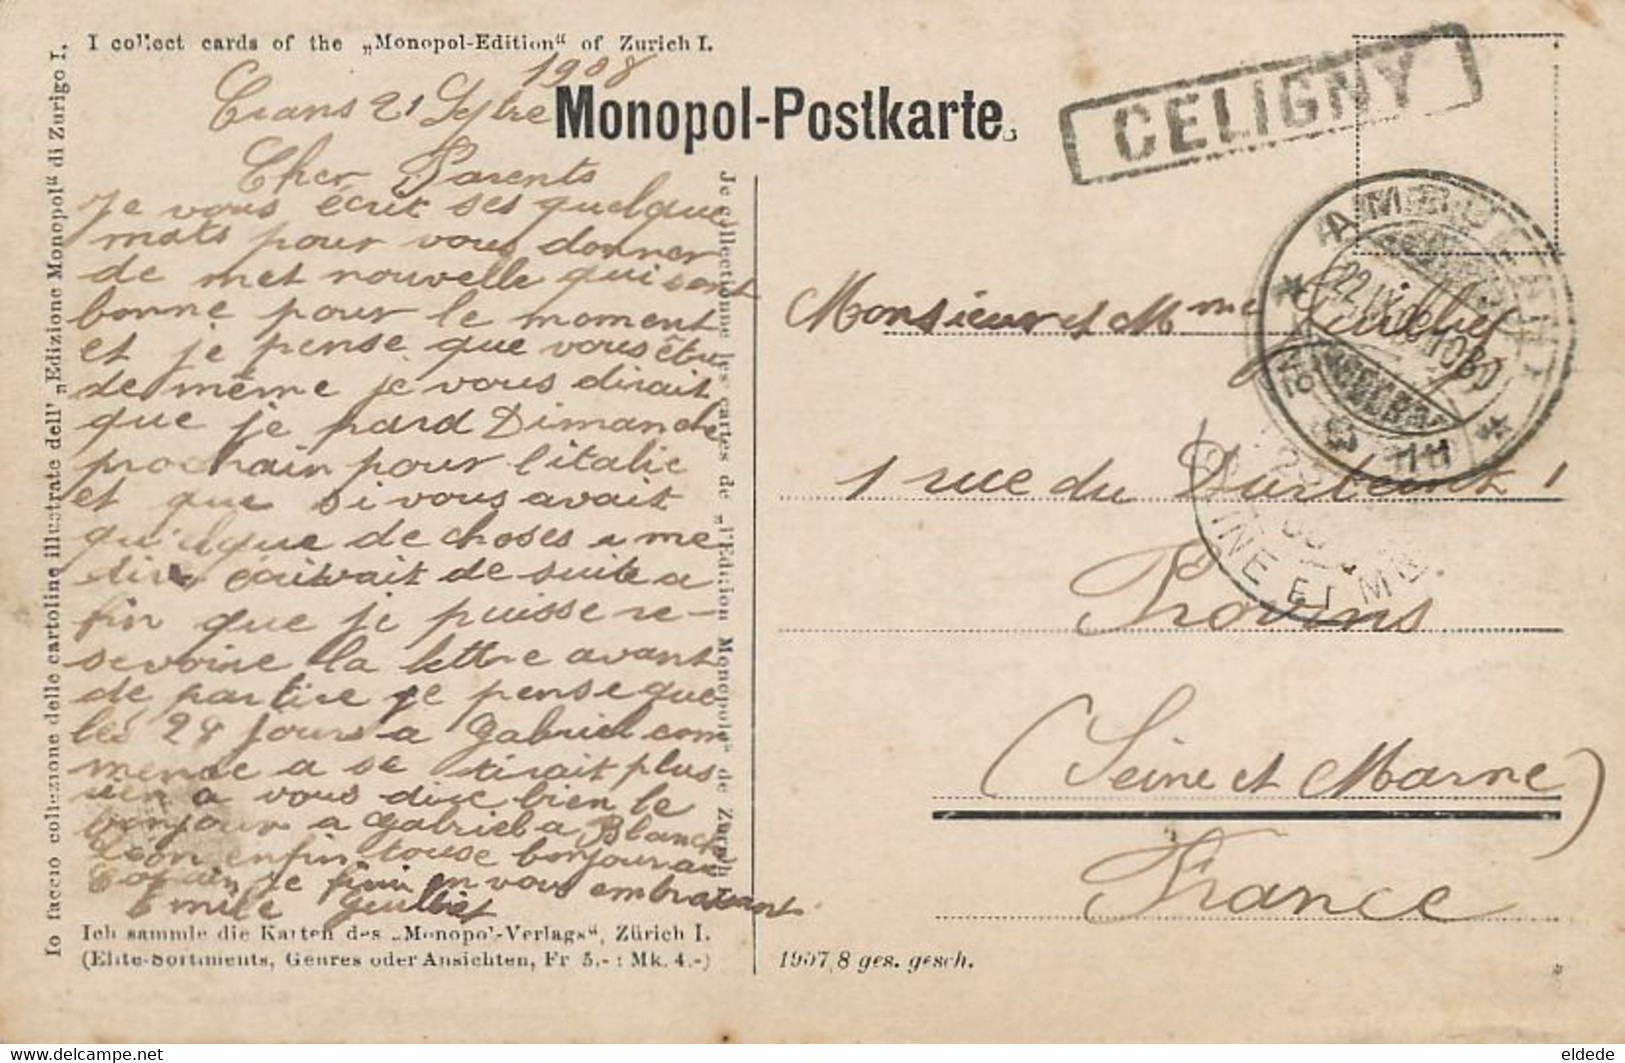 I collect cards of the „Monopol-Edition“ of Zurich I.
Io faccio collezione delle cartoline illustrate dell' „Edizione Monopol“ di Zurigo I.
Monopol-Postkarte
CELIGNY
1908
Crans 21 Septre
Cher Parents
Je vous écrit ses quelque
mots pour vous donner
de met nouvelle qui sont
bonne pour le moment
et je pense que vous ête
de même je vous dirait
que je pard Dimanche
prochain pour l'italie
et que si vous avait
qu'elque de choses a me
dire écrivait de suite a
fin que je puisse re-
sevoire la lettre avant
de partire je pense que
les 28 jours a Gabriel com
mence a se tirait plus
rien a vous dire bien le
bonjour a Gabriel a Blanche
Leon enfin touse bonjour au
Copain je fini en vous embrassant
Emile
Je collectionne les cartes de „l'Edition Monopole“ de Zurich I.
Ich sammle die Karten des „Monopol-Verlags“, Zürich I.
(Elite-Sortiments, Genres oder Ansichten, Fr 5.- : Mk. 4.-)
AMBULANT
22 IX
Monsieur et Mme
1 rue du
Provins
INE ET M
(Seine et Marne)
France
1907/8 ges. gesch.
eldede